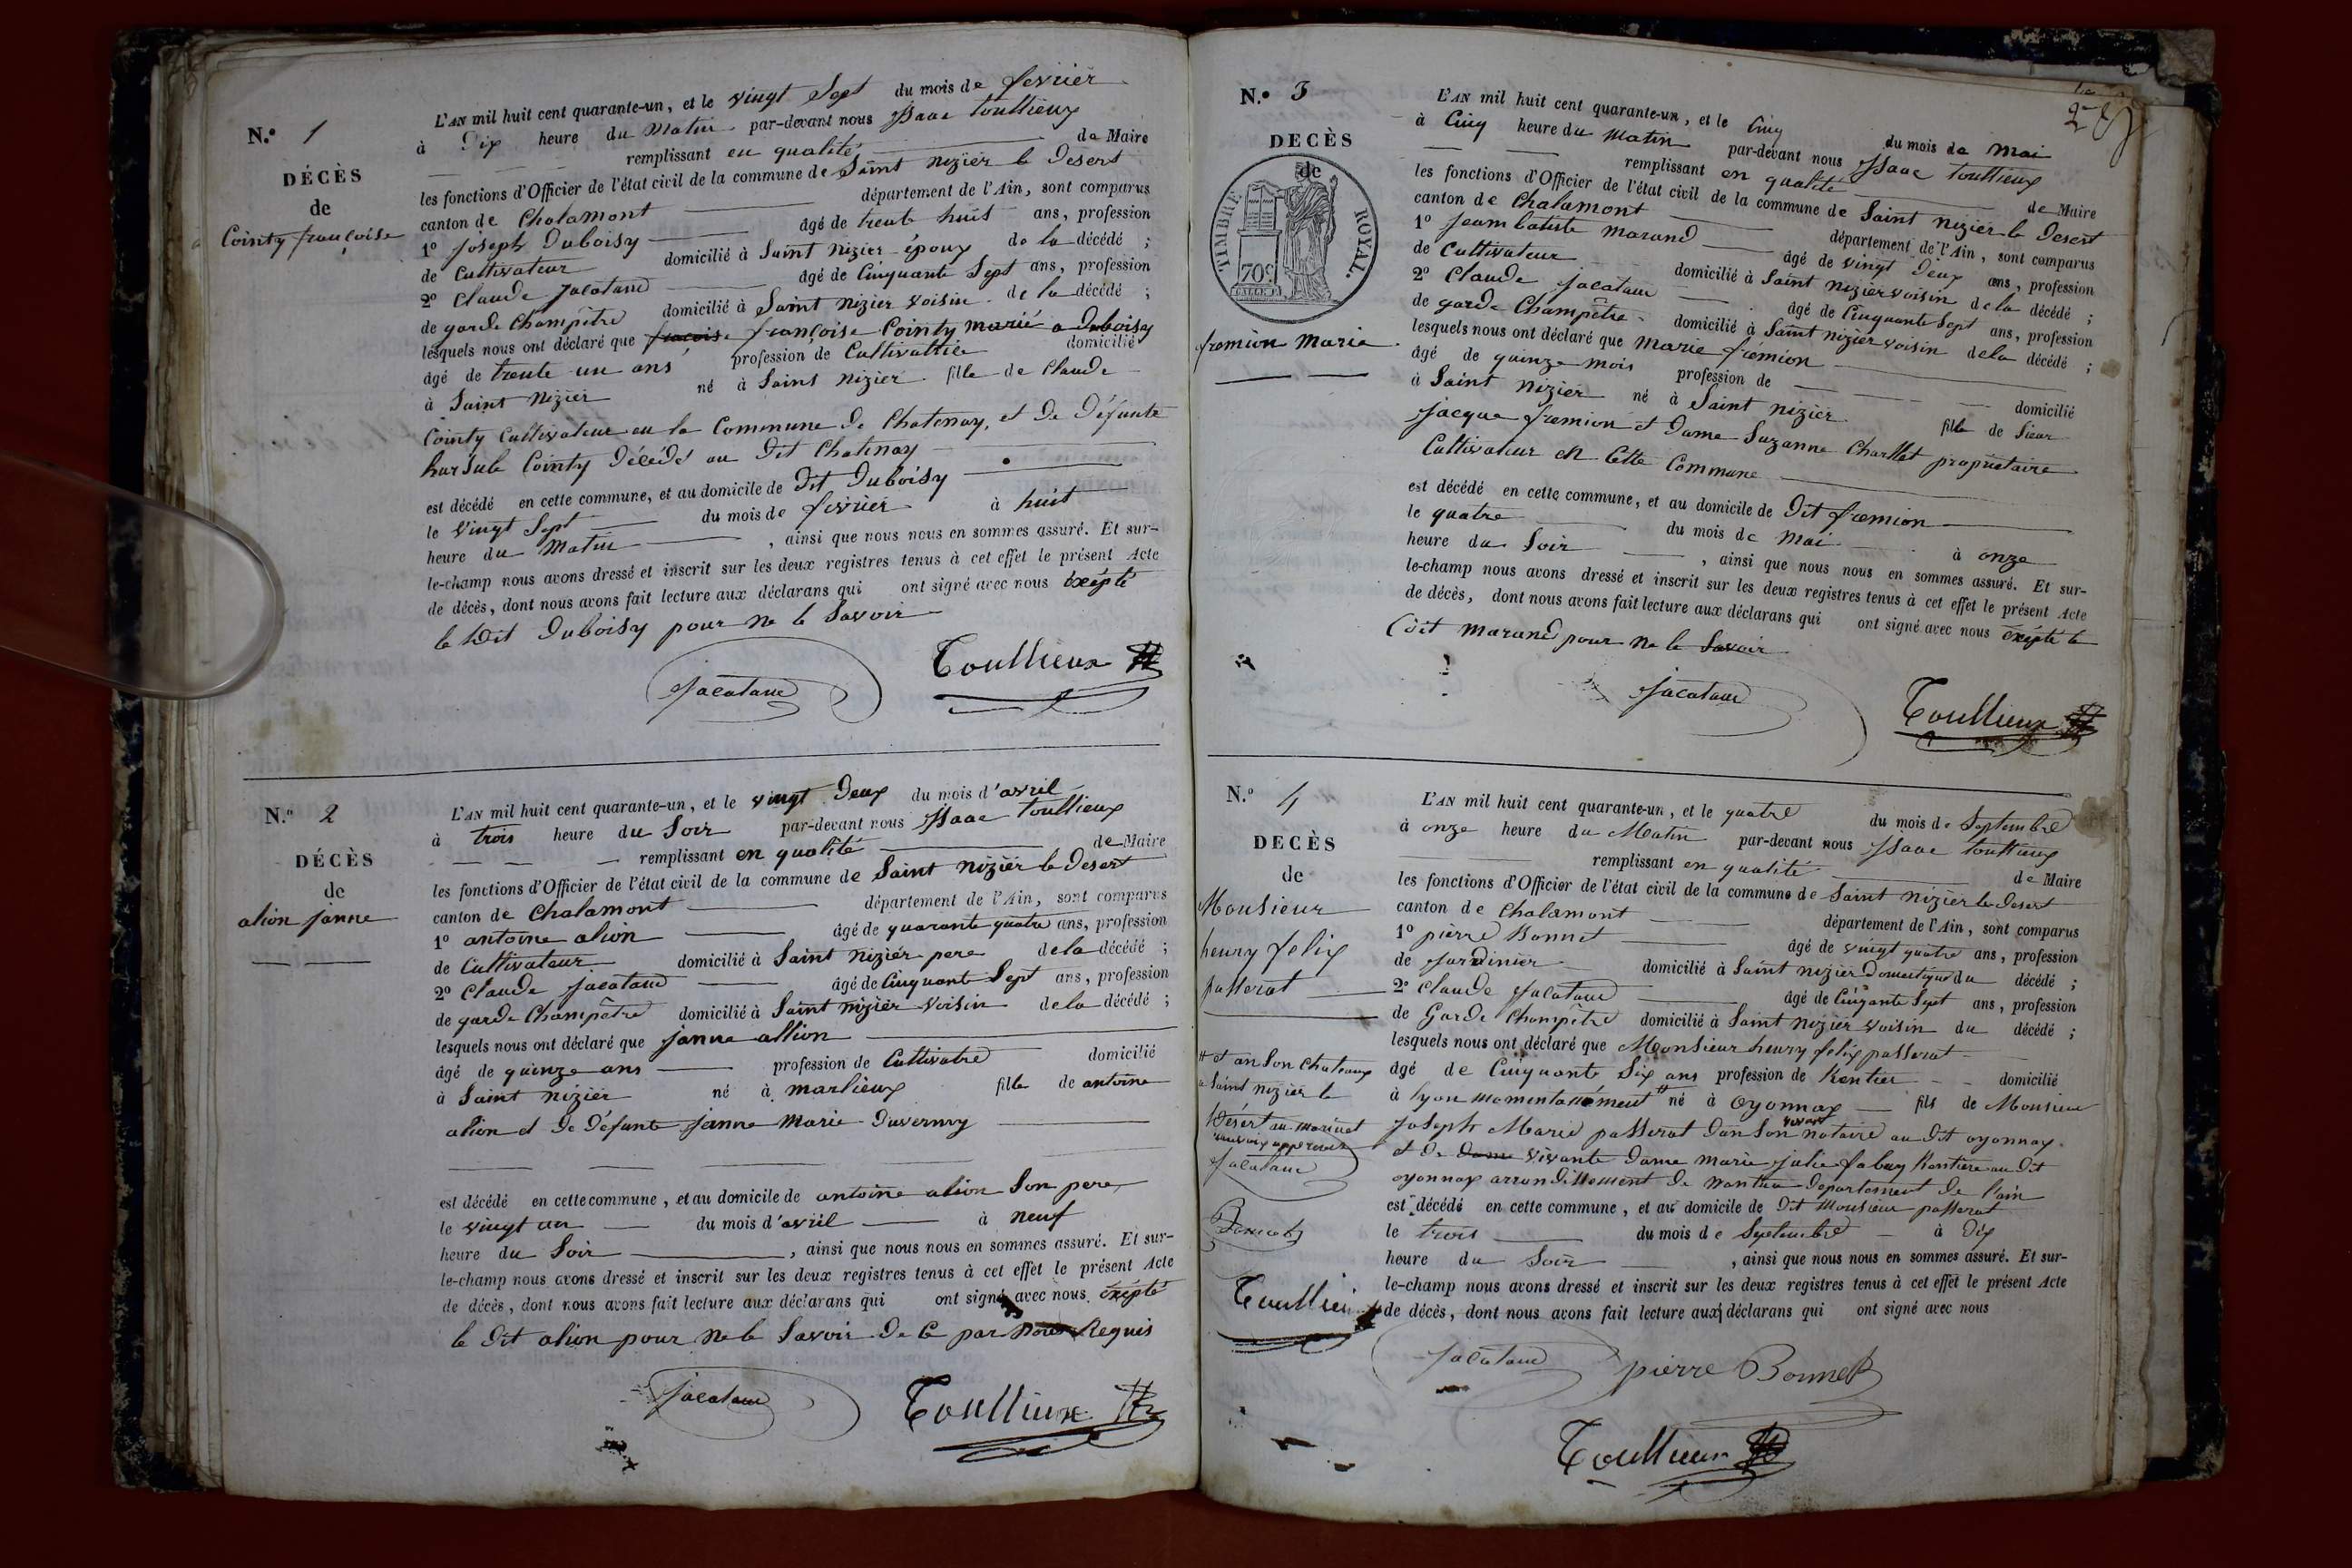 N.º 1
DÉCÈS
de
Cointy françoise
L'AN mil huit cent quarante-un, et le vingt Sept du mois de fevrier
à Dix heure du Matin par-devant nous Isaac touttieux
remplissant en qualité de Maire
les fonctions d'Officier de l'état civil de la commune de Saint nizier le Desert
canton de Chalamont département de l'Ain, sont comparus
1º Joseph Duboisy âgé de trente huit ans, profession
de Cultivateur domicilié à Saint nizier époux de la décédé ;
2º Claude Jacataud âgé de Cinquante Sept ans, profession
de garde Champêtre domicilié à Saint nizier voisin de la décédé ;
lesquels nous ont déclaré que françoise Cointy marié a Duboisy
âgé de trente un ans profession de Cultivatrice domicilié
à Saint Nizier né à Saint Nizier fille de Claude
Cointy Cultivateur en la Commune de Chatenay, et de Défunte
hursule Cointy Décédé au Dit Chatenay
est décédé en cette commune, et au domicile de Dit Duboisy
le vingt Sept du mois de fevrier à huit
heure du Matin , ainsi que nous nous en sommes assuré. Et sur-
le-champ nous avons dressé et inscrit sur les deux registres tenus à cet effet le présent Acte
de décès, dont nous avons fait lecture aux déclarans qui ont signé avec nous éxépté
le Dit Duboisy pour ne le Savoir
Jacataud Touttieux
N.º 2
DÉCÈS
de
alion janne
L'AN mil huit cent quarante-un, et le vingt Deux du mois d'avril
à trois heure du Soir par-devant nous Isaac touttieux
remplissant en qualité de Maire
les fonctions d'Officier de l'état civil de la commune de Saint Nizier le Desert
canton de Chalamont département de l'Ain, sont comparus
1º antoine alion âgé de quarante quatre ans, profession
de Cultivateur domicilié à Saint Nizier pere de la décédé ;
2º Claude Jacataud âgé de Cinquante Sept ans, profession
de garde Champêtre domicilié à Saint Nizier voisin de la décédé ;
lesquels nous ont déclaré que janne allion
âgé de quinze ans profession de Cultivatre domicilié
à Saint nizier né à marlieux fille de antoine
alion et De Défunte janne Marie Duverney
est décédé en cette commune, et au domicile de antoine alion Son pere
le vingt un du mois d'avril à neuf
heure du Soir , ainsi que nous nous en sommes assuré. Et sur-
le-champ nous avons dressé et inscrit sur les deux registres tenus à cet effet le présent Acte
de décès, dont nous avons fait lecture aux déclarans qui ont signé avec nous éxépté
le Dit alion pour ne le Savoir De Ce par nous Requis
Jacataud Touttieux
N.º 3
DECÈS
de
TIMBRE ROYAL.
70 c
fremion Marie
L'AN mil huit cent quarante-un, et le Cinq du mois de Mai
à Cinq heure du Matin par-devant nous Isaac touttieux
remplissant en qualité de Maire
les fonctions d'Officier de l'état civil de la commune de Saint Nizier le Desert
canton de Chalamont département de l'Ain, sont comparus
1º Jean batiste Marand âgé de vingt Deux ans, profession
de Cultivateur domicilié à Saint Nizier voisin de la décédé ;
2º Claude Jacataud âgé de Cinquante Sept ans, profession
de garde Champêtre domicilié à Saint Nizier voisin de la décédé ;
lesquels nous ont déclaré que Marie frémion
âgé de quinze mois profession de domicilié
à Saint Nizier né à Saint nizier fille de Sieur
jacque fremion et Dame Suzanne Charllet propriétaire
Cultivateur en Cette Commune
est décédé en cette commune, et au domicile de Dit fremion
le quatre du mois de Mai à onze
heure du Soir , ainsi que nous nous en sommes assuré. Et sur-
le-champ nous avons dressé et inscrit sur les deux registres tenus à cet effet le présent Acte
de décès, dont nous avons fait lecture aux déclarans qui ont signé avec nous éxépté le
Dit Marand pour ne le Savoir
Jacataud Touttieux
N.º 4
DECÈS
de
Monsieur
henry felix
passerat
L'AN mil huit cent quarante-un, et le quatre du mois de Septembre
à onze heure du Matin par-devant nous Isaac touttieux
remplissant en qualité de Maire
les fonctions d'Officier de l'état civil de la commune de Saint Nizier le Desert
canton de Chalamont département de l'Ain, sont comparus
1º pierre Bonnet âgé de vingt quatre ans, profession
de Jardinier domicilié à Saint nizier Domestique du décédé ;
2º Claude Jacataud âgé de Cinquante Sept ans, profession
de Garde Champêtre domicilié à Saint Nizier voisin du décédé ;
lesquels nous ont déclaré que Monsieur henry felix passerat
âgé de Cinquante Six ans profession de Rentier domicilié
à lyon momentanément né à Oyonnax fils de Monsieur
Joseph Marie passerat Dans Son vivant notaire au Dit oyonnax
et De vivante Dame Marie Julie Rentière au Dit
oyonnax arrondissement De nantua Departement De l'ain
est décédé en cette commune, et au domicile de Dit Monsieur passerat
le trois du mois de Septembre à Dix
heure du Soir , ainsi que nous nous en sommes assuré. Et sur-
le-champ nous avons dressé et inscrit sur les deux registres tenus à cet effet le présent Acte
de décès, dont nous avons fait lecture aux déclarans qui ont signé avec nous
Jacataud pierre Bonnet
Touttieux
et an Son Chateaux
a Saint nizier le
Désert
Jacataud
Bonnet
Touttieux